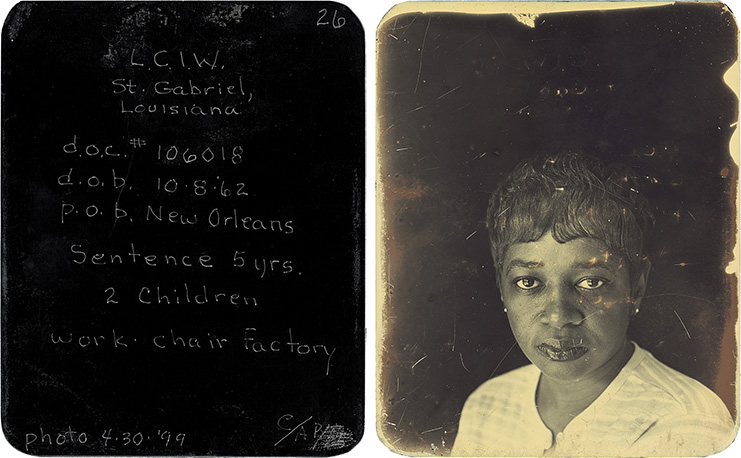 26
L.C.I.W.
St. Gabriel,
Louisiana
d.o.c.# 106018
d.o.b. 10.8.'62
p.o.b. New Orleans
Sentence 5 yrs.
2 Children
work. chair Factory
photo 4.30.'99